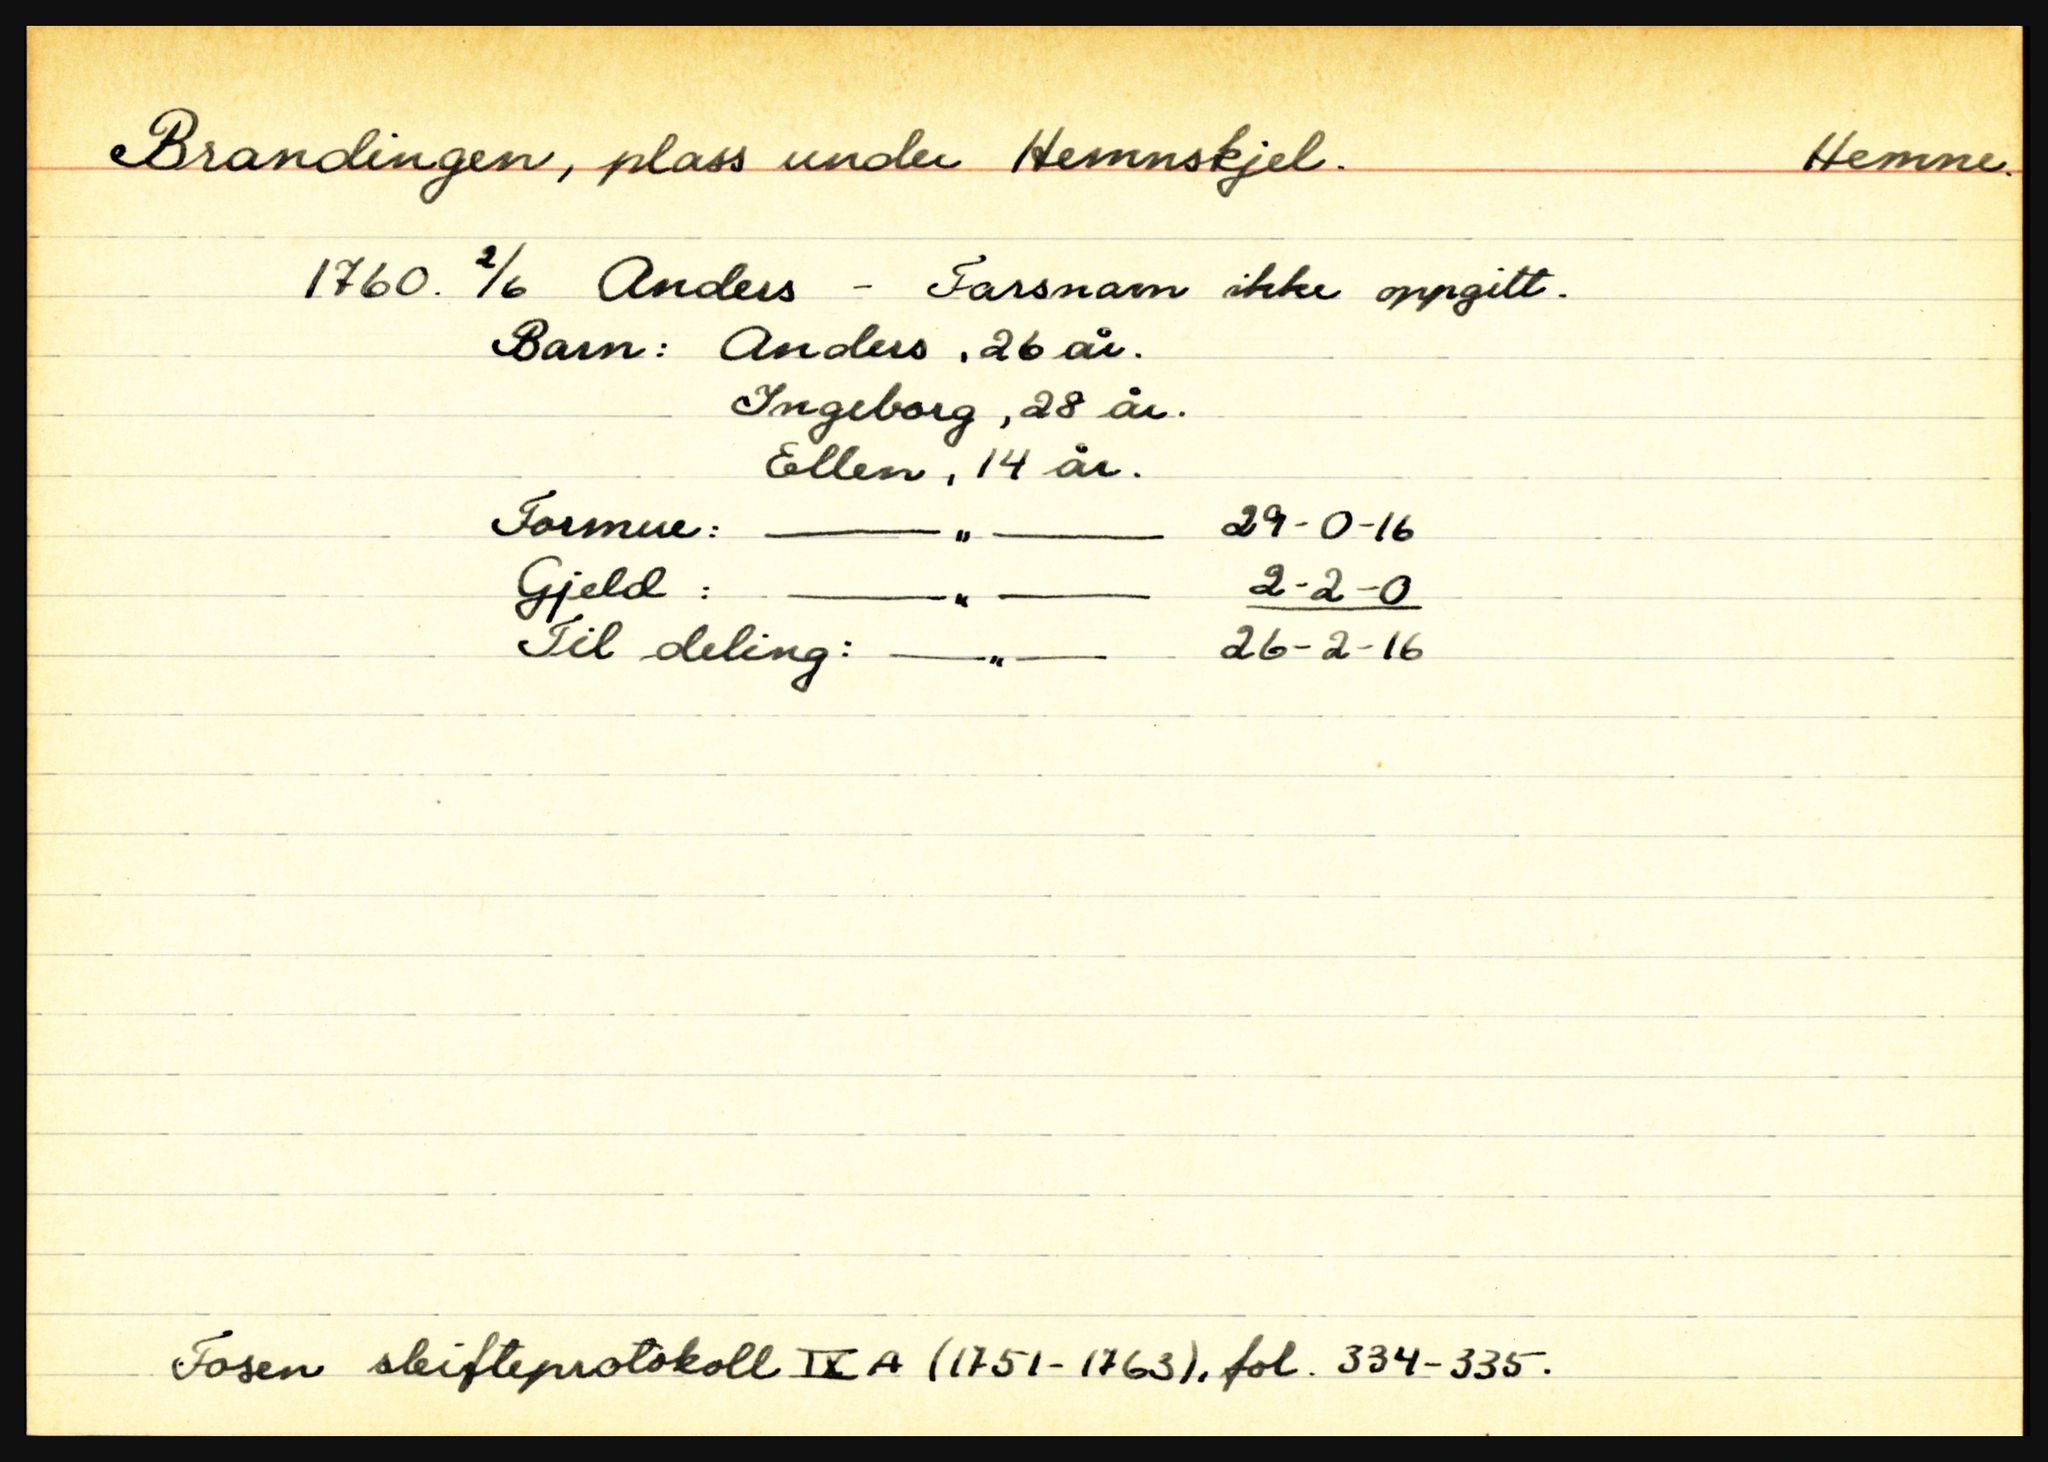 Brandingen, plass under Hemnskjel. Hemne.
1760. 2/6 Anders - Farsnam ikke oppgitt.
Barn: Anders, 26 år.
Ingeborg, 28 år.
Ellen, 14 år.
Formue: —— " —— 29-0-16
Gjeld: —— " —— 2-2-0
Til deling: —— " —— 26-2-16
Fosen skifteprotokoll IX A (1751-1763), fol. 334-335.